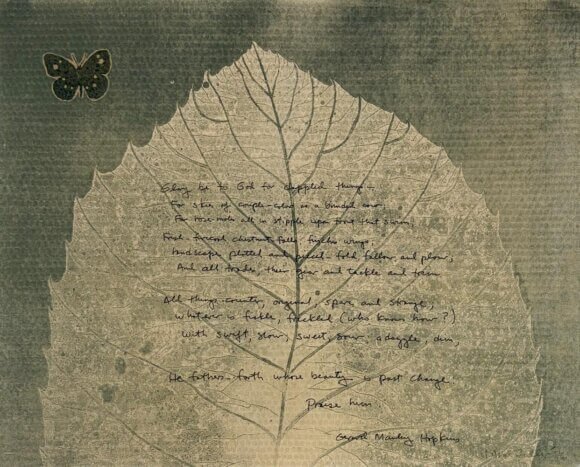 Glory be to God for dappled things—
For skies of couple-color as a brinded cow;
For rose-moles all in stipple upon trout that swim;
Fresh-firecoal chestnut-falls; finches wings;
Landscape plotted and pieced - fold, fallow, and plow;
And all trades, their gear and tackle and trim
All things counter, original, spare, and strange;
Whatever is fickle, freckled (who knows how?)
With swift, slow; sweet, sour; adazzle, dim;
He fathers-forth whose beauty is past change
Praise him
Gerard Manley Hopkins